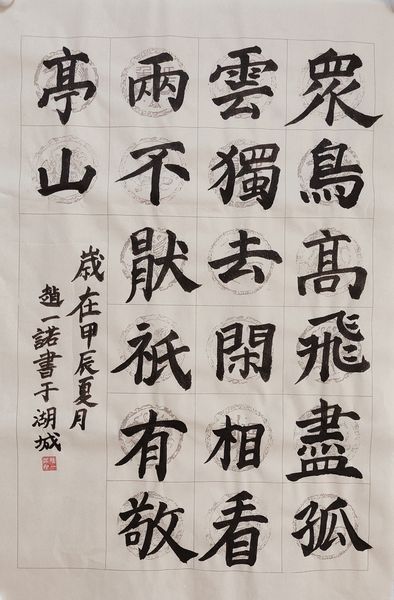 眾鳥高飛盡孤
雲獨去閑相看
兩不厭祇有敬
亭山
歲在甲辰夏月
趙一諾書于湖城